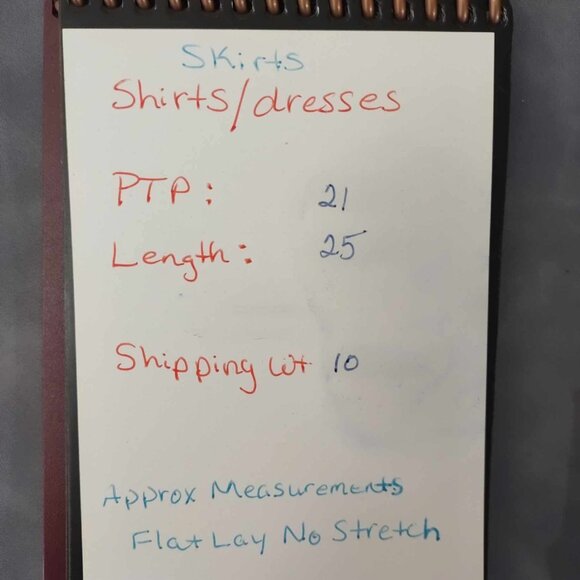 Skirts
Shirts/dresses
PTP: 21
Length: 25
Shipping wt 10
Approx Measurements
Flat Lay No Stretch